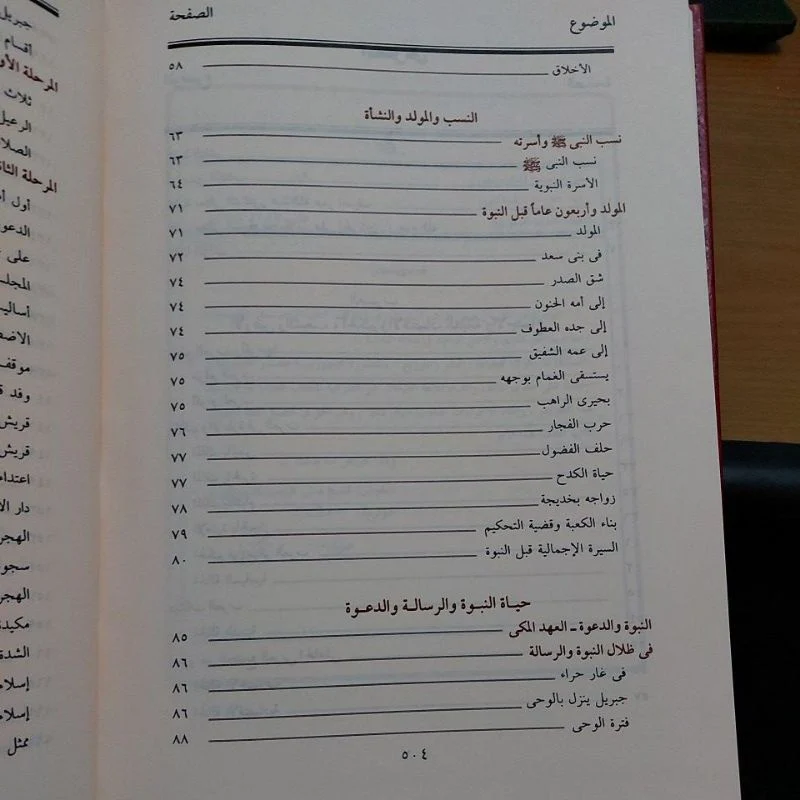 الموضوع الصفحة
الأخلاق ٥٨
النسب والمولد والنشأة
نسب النبى ﷺ وأسرته ٦٣
نسب النبى ﷺ ٦٣
الأسرة النبوية ٦٤
المولد وأربعون عاماً قبل النبوة ٧١
المولد ٧١
فى بنى سعد ٧٢
شق الصدر ٧٤
إلى أمه الحنون ٧٤
إلى جده العطوف ٧٤
إلى عمه الشفيق ٧٥
يستسقى الغمام بوجهه ٧٥
بحيرى الراهب ٧٥
حرب الفجار ٧٦
حلف الفضول ٧٧
حياة الكدح ٧٧
زواجه بخديجة ٧٨
بناء الكعبة وقضية التحكيم ٧٩
السيرة الإجمالية قبل النبوة ٨٠
حياة النبوة والرسالة والدعوة
النبوة والدعوة ـ العهد المكى ٨٥
فى ظلال النبوة والرسالة ٨٦
فى غار حراء ٨٦
جبريل ينزل بالوحى ٨٦
فترة الوحى ٨٨
٥٠٤
جبريل
أقسام
المرحلة الأو
ثلاث
الرعيل
الصلا
المرحلة الثا
أول أ
الدعو
على
المجلس
أساليب
الاض
موقف
وفد ق
قريش
قريش
اعتداء
دار الأ
الهجر
سجو
الهجر
مكيدة
الشدة
إسلا
إسلا
ممثل